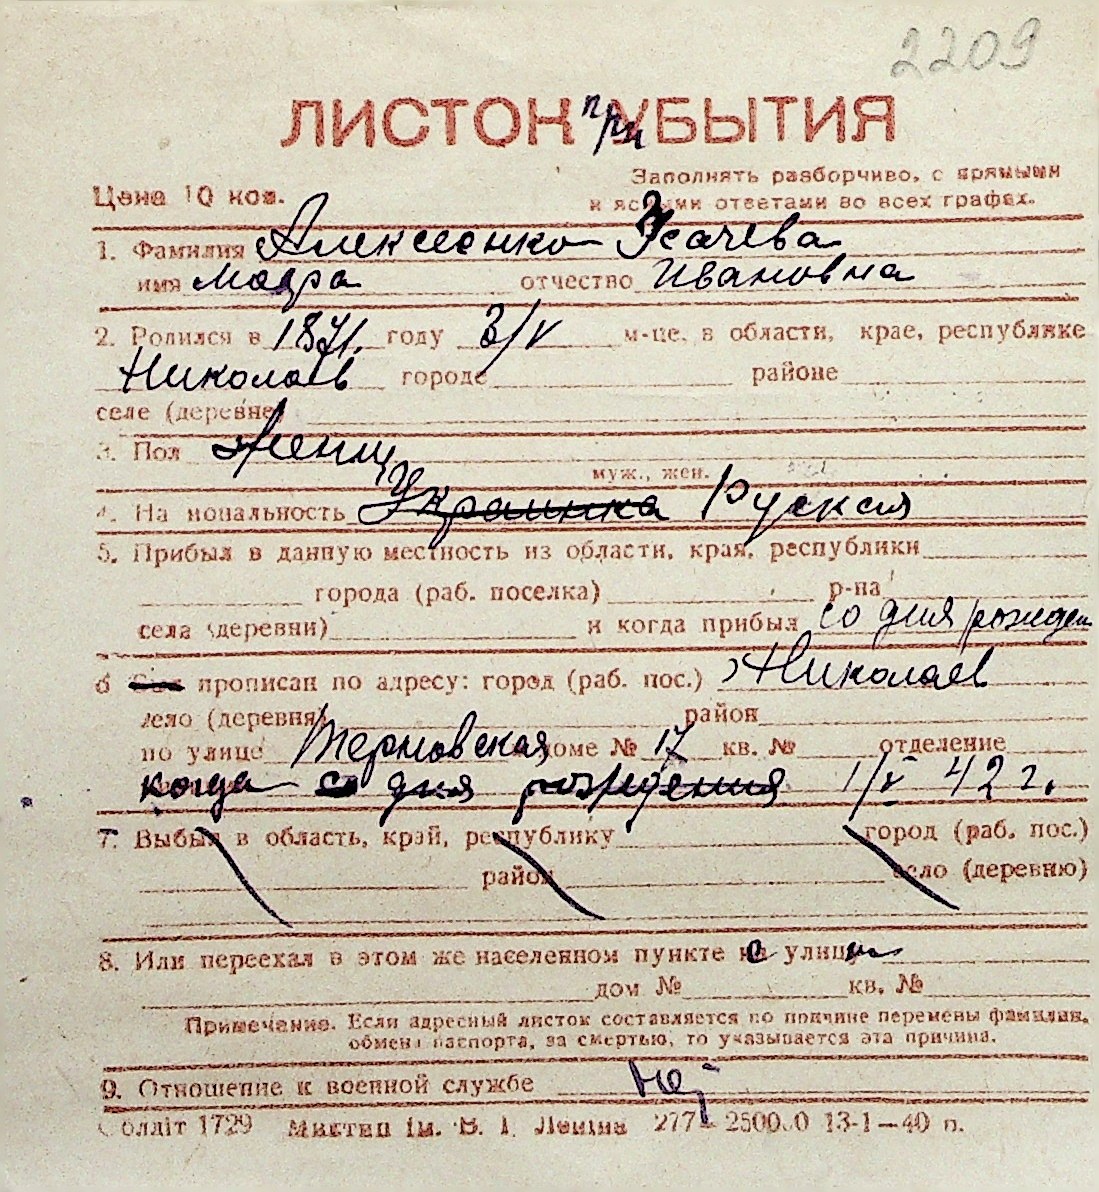 2209
ЛИСТОК при УБЫТИЯ
Цена 10 коп.
Заполнять разборчиво, с прямыми
и ясными ответами во всех графах.
1. Фамилия Алексеенко Усачева
имя Мавра отчество Ивановна
2. Родился в 1871. году 3/V м-це, в области, крае, республике
Николаев городе районе
селе (деревне)
3. Пол Женщ
муж., жен.
4. На иональность Украинка Руская
5. Прибыл в данную местность из области, края, республики
города (раб. поселка) р-на
села (деревни) и когда прибыл со дня рожден
6 прописан по адресу: город (раб. пос.) Николаев
село (деревня) район
по улице Терновская доме № 17 кв. № отделение
когда со дня рождения 1/V 42 г.
7. Выбыл в область, край, республику город (раб. пос.)
район село (деревню)
8. Или переехал в этом же населенном пункте с улицы
дом № кв. №
Примечание. Если адресный листок составляется по причине перемены фамилии,
обмена паспорта, за смертью, то указывается эта причина.
9. Отношение к военной службе Нет
Облліт 1729 Миктип ім. В. І. Леніна 277—250000 13-1—40 п.